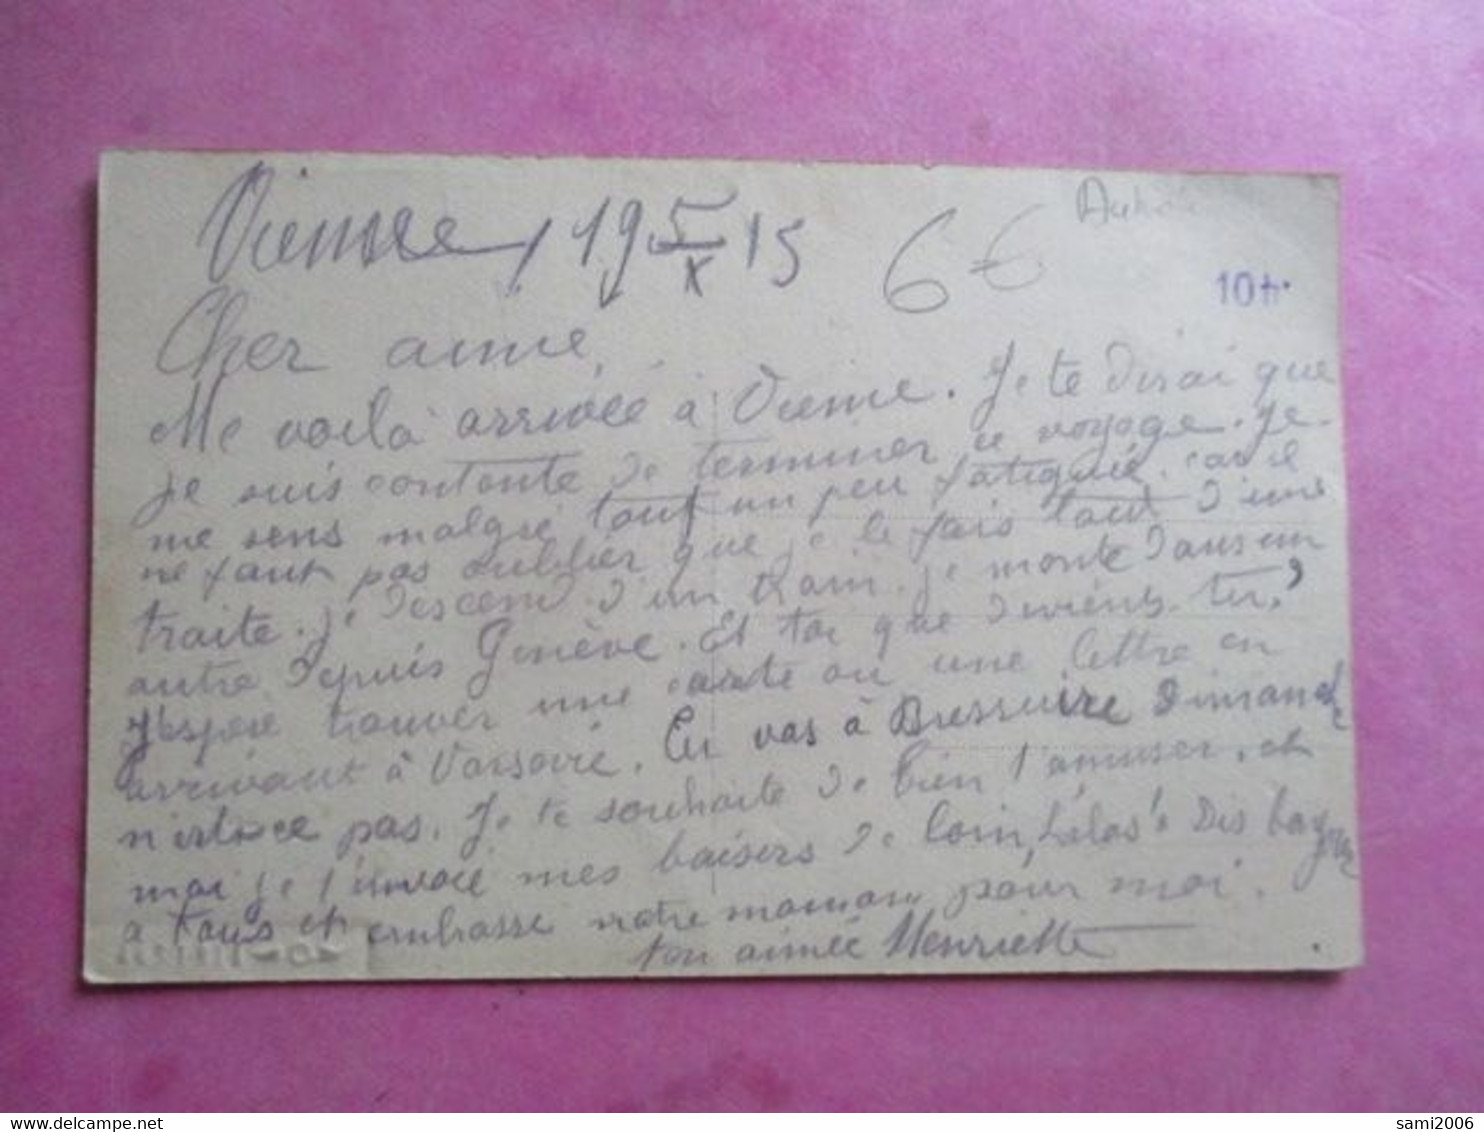 Vienne, 19 5/X 15
6 €
10 fr.
Cher aimé,
Me voilà arrivée à Vienne. Je te dirai que
je suis contente de terminer ce voyage. Je
me sens malgré tout un peu fatiguée. car il
ne faut pas oublier que je le fais tout d'une
traite. Je descend d'un train. je monte dans un
autre depuis Genève. Et toi que deviens-tu?
J'espère trouver une carte ou une lettre en
arrivant à Varsovie. Tu vas à Bressuire Dimanche
n'est-ce pas. Je te souhaite de bien t'amuser. et
moi je t'envoie mes baisers de loin, hélas! Dis bonjour
a tous et embrasse notre maman pour moi.
ton aimée Henriette
sami2006